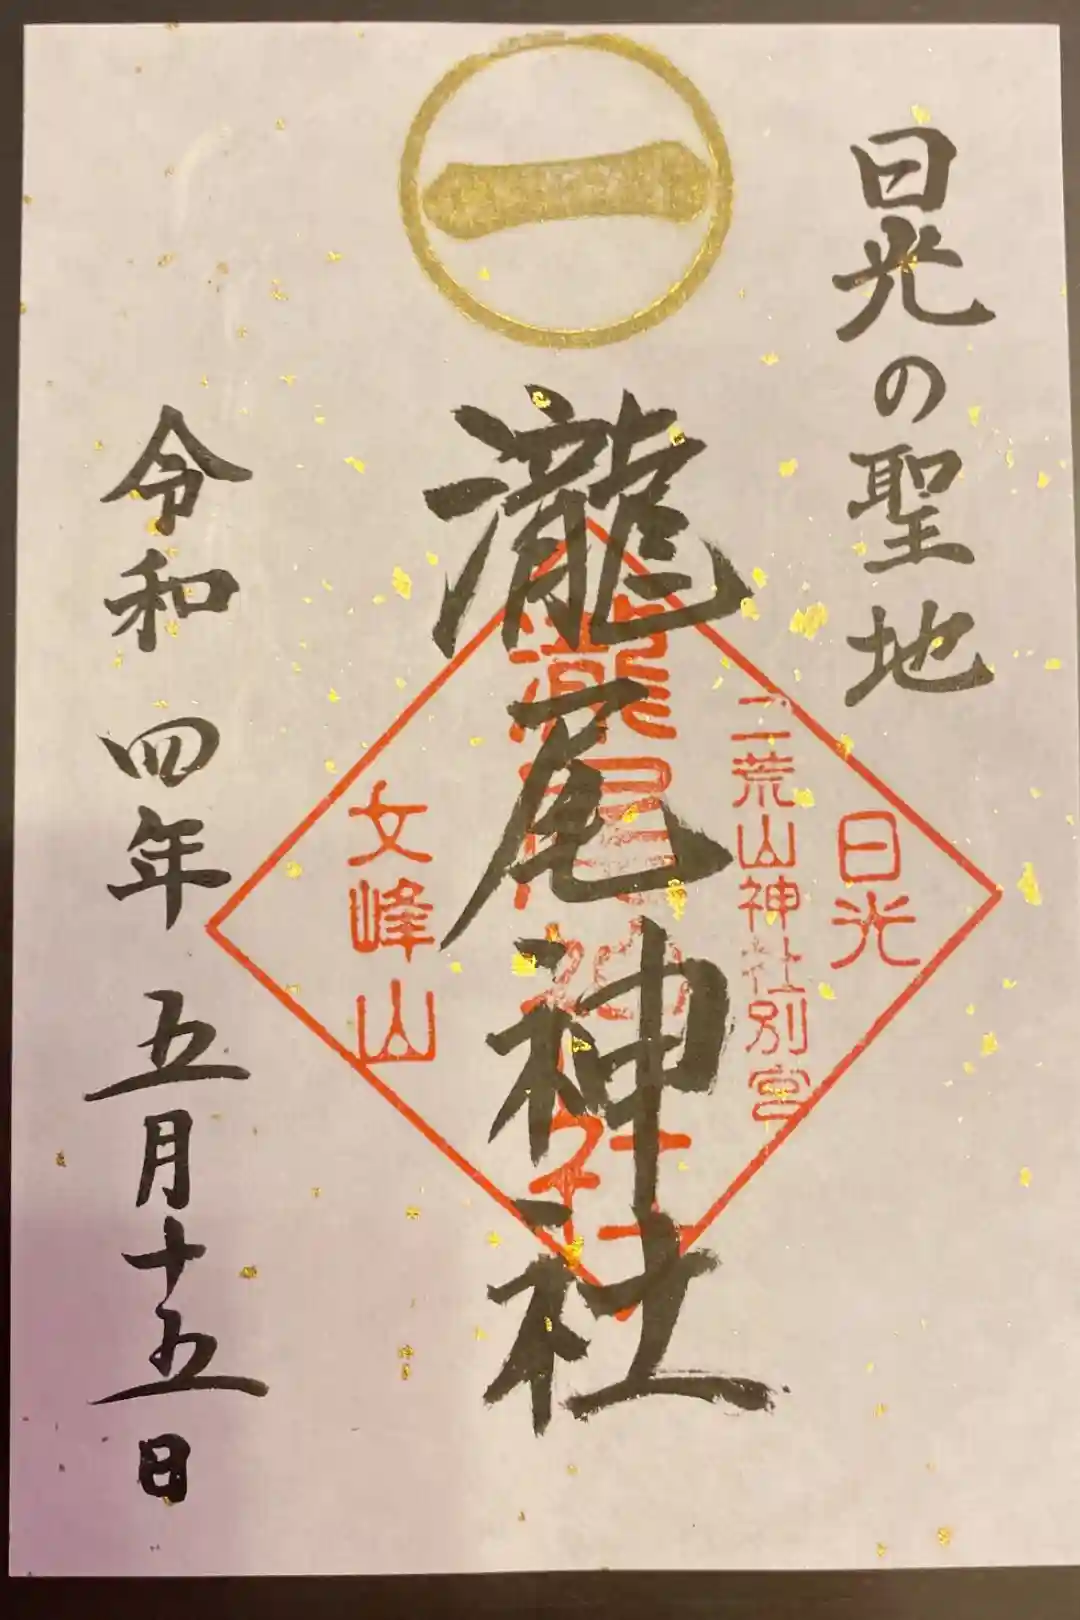 一
日光の聖地
日光
二荒山神社別宮
瀧尾神社
瀧尾神社
女峰山
令和四年五月十五日